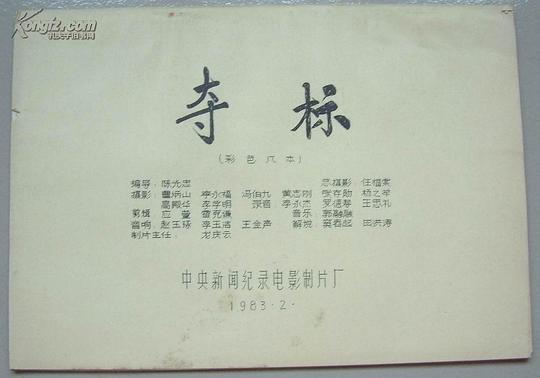 Kongfz.com
孔夫子旧书网
夺标
(彩色 本)
编导 陈光忠 总摄影 任福棠
摄影 曹炳山 李永福 冯伯九 黄志刚 张存勋 杨之举
高殿华 李学明 录音 李永杰 罗德慧 王思礼
剪辑 应萱 雷克谦 音乐 郭融融
音响 赵玉臻 李玉洛 王金声 解说 窦春起 田洪涛
制片主任 龙庆云
中央新闻纪录电影制片厂
1983·2·